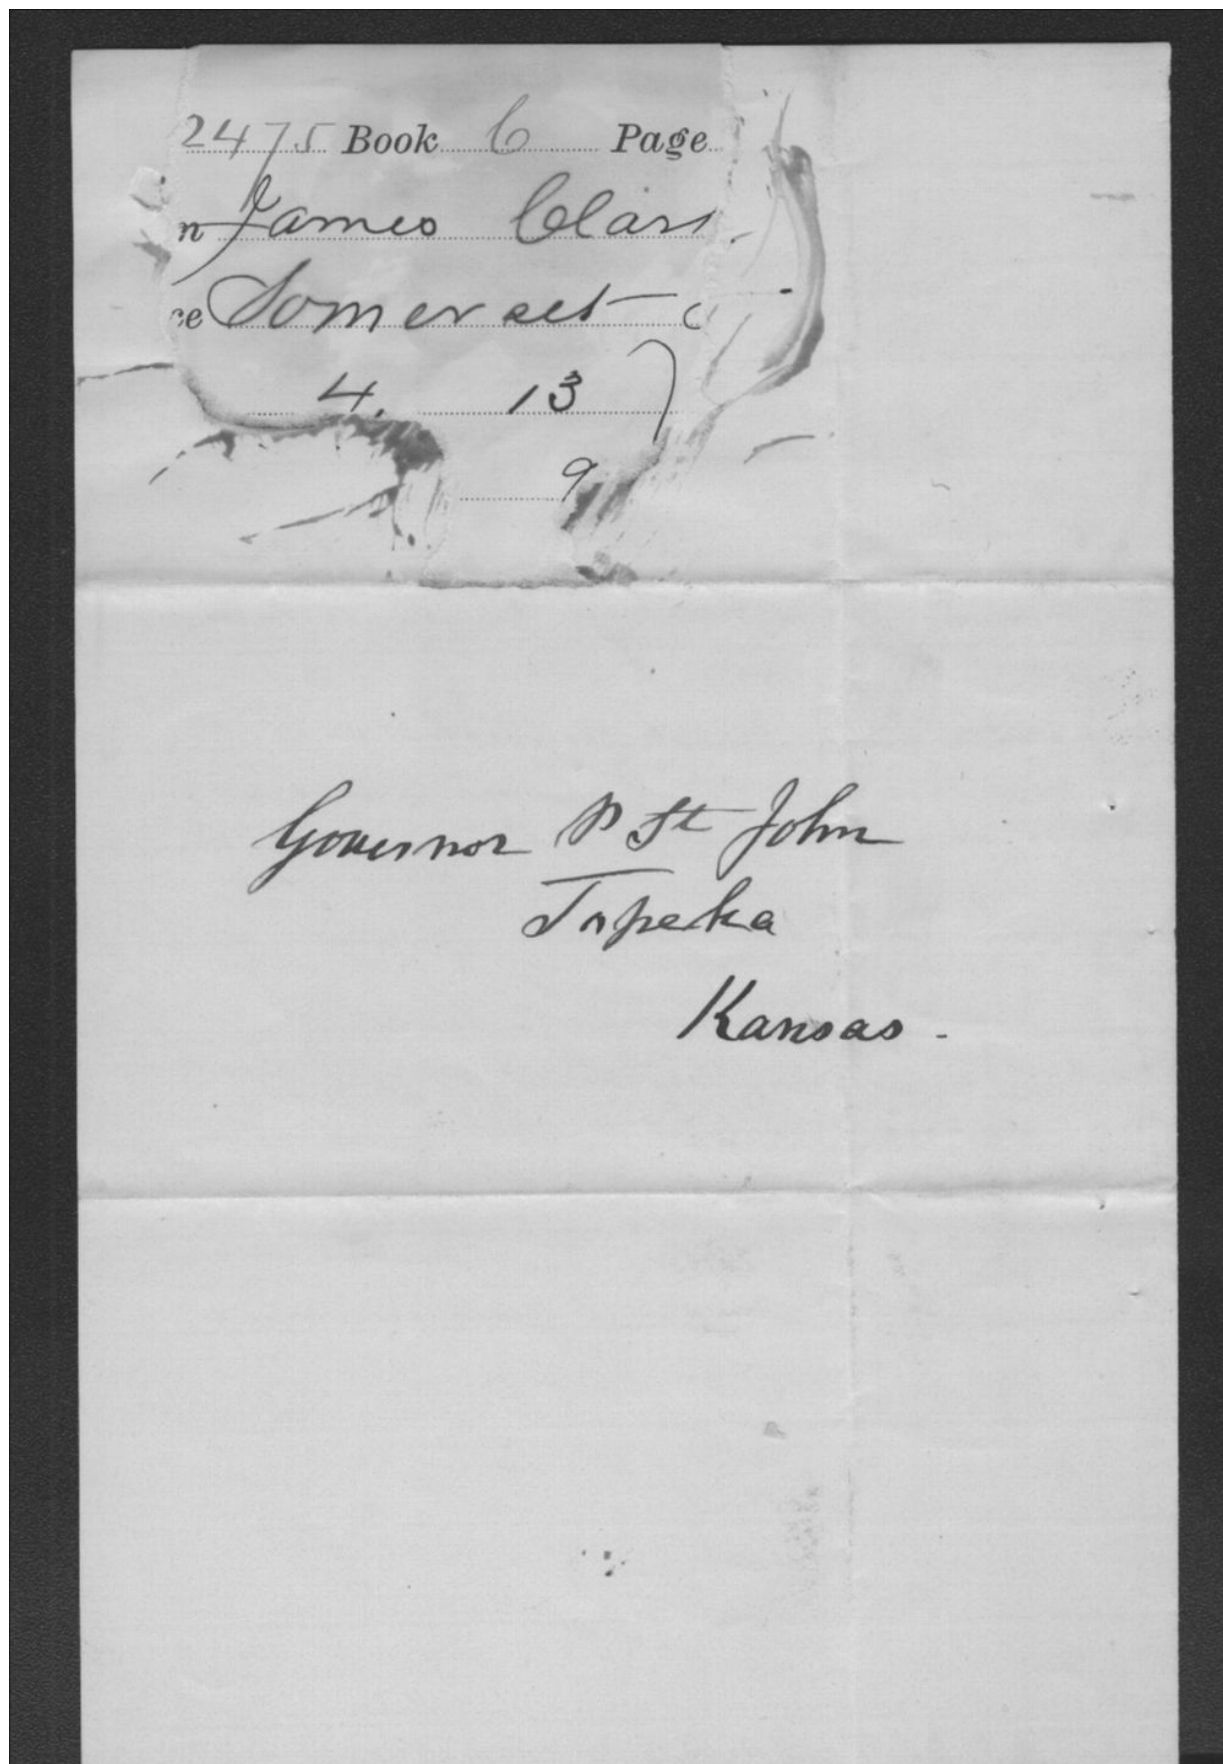 2475 Book 6 Page
n James Clar
ce Somerset
4. 13
9
Governor P St John
Topeka
Kansas -